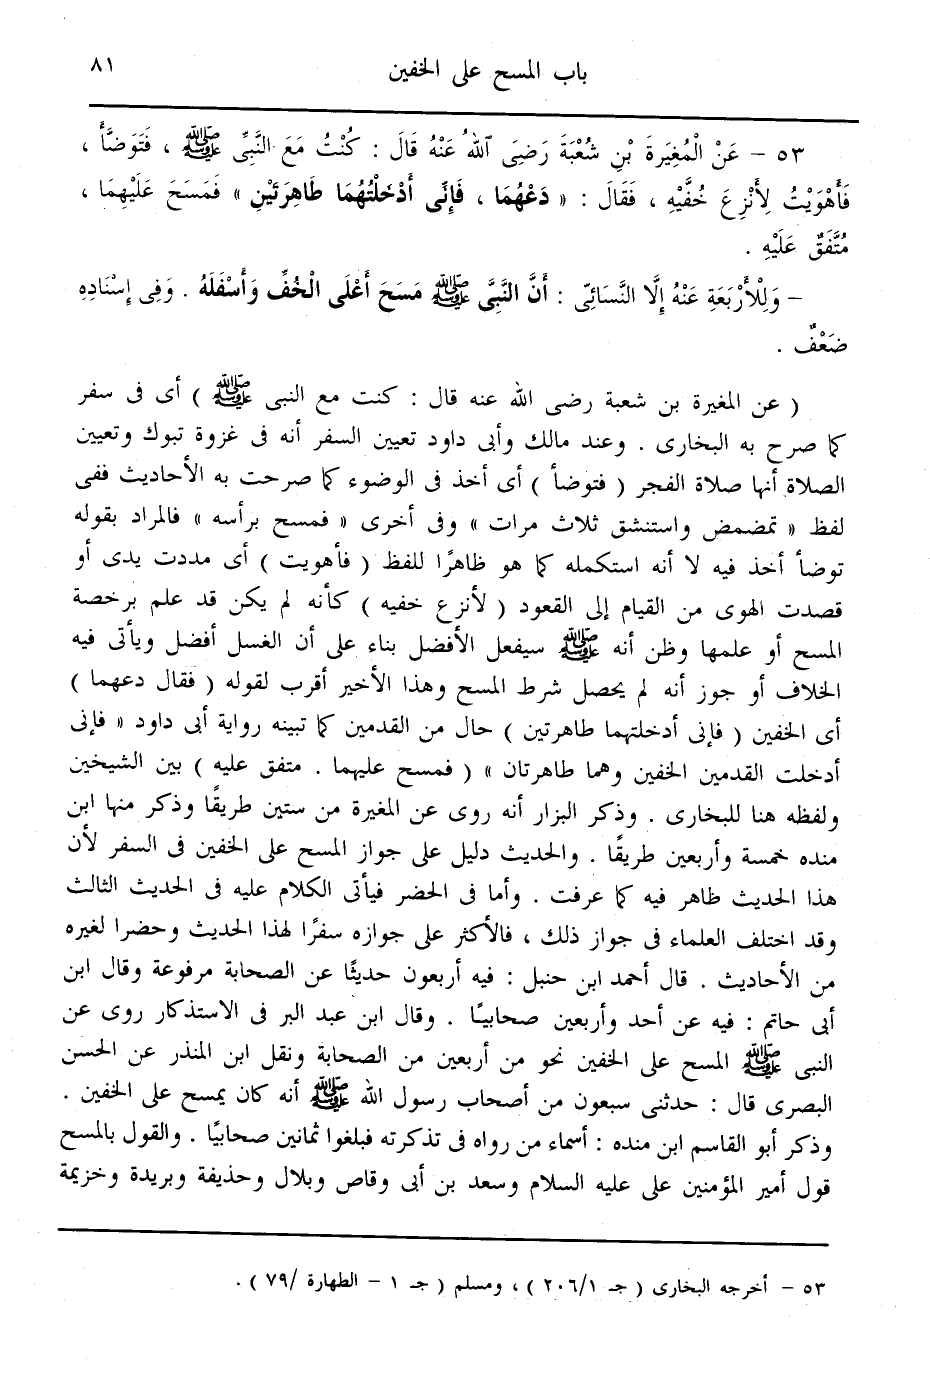 باب المسح على الخفين ٨١
٥٣ - عَنْ الْمُغِيرَةِ بْنِ شُعْبَةَ رَضِىَ ٱللهُ عَنْهُ قَالَ : كُنْتُ مَعَ النَّبِىِّ ﷺ ، فَتَوَضَّأَ ،
فَأَهْوَيْتُ لِأَنْزِعَ خُفَّيْهِ ، فَقَالَ : « دَعْهُمَا ، فَإِنِّى أَدْخَلْتُهُمَا طَاهِرَتَيْنِ » فَمَسَحَ عَلَيْهِمَا ،
مُتَّفَقٌ عَلَيْهِ .
- وَلِلْأَرْبَعَةِ عَنْهُ إِلَّا النَّسَائِىّ : أَنَّ النَّبِىَّ ﷺ مَسَحَ أَعْلَى الْخُفِّ وَأَسْفَلَهُ . وَفِى إِسْنَادِهِ
ضَعْفٌ .
( عن المغيرة بن شعبة رضى الله عنه قال : كنت مع النبى ﷺ ) أى فى سفر
كما صرح به البخارى . وعند مالك وأبى داود تعيين السفر أنه فى غزوة تبوك وتعيين
الصلاة أنها صلاة الفجر ( فتوضأ ) أى أخذ فى الوضوء كما صرحت به الأحاديث ففى
لفظ « تمضمض واستنشق ثلاث مرات » وفى أخرى « فمسح برأسه » فالمراد بقوله
توضأ أخذ فيه لا أنه استكمله كما هو ظاهرًا للفظ ( فأهويت ) أى مددت يدى أو
قصدت الهوى من القيام إلى القعود ( لأنزع خفيه ) كأنه لم يكن قد علم برخصة
المسح أو علمها وظن أنه ﷺ سيفعل الأفضل بناء على أن الغسل أفضل ويأتى فيه
الخلاف أو جوز أنه لم يحصل شرط المسح وهذا الأخير أقرب لقوله ( فقال دعهما )
أى الخفين ( فإنى أدخلتهما طاهرتين ) حال من القدمين كما تبينه رواية أبى داود « فإنى
أدخلت القدمين الخفين وهما طاهرتان » ( فمسح عليهما . متفق عليه ) بين الشيخين
ولفظه هنا للبخارى . وذكر البزار أنه روى عن المغيرة من ستين طريقًا وذكر منها ابن
منده خمسة وأربعين طريقًا . والحديث دليل على جواز المسح على الخفين فى السفر لأن
هذا الحديث ظاهر فيه كما عرفت . وأما فى الحضر فيأتى الكلام عليه فى الحديث الثالث
وقد اختلف العلماء فى جواز ذلك ، فالأكثر على جوازه سفرًا لهذا الحديث وحضرا لغيره
من الأحاديث . قال أحمد ابن حنبل : فيه أربعون حديثًا عن الصحابة مرفوعة وقال ابن
أبى حاتم : فيه عن أحد وأربعين صحابيًا . وقال ابن عبد البر فى الاستذكار روى عن
النبى ﷺ المسح على الخفين نحو من أربعين من الصحابة ونقل ابن المنذر عن الحسن
البصرى قال : حدثنى سبعون من أصحاب رسول الله ﷺ أنه كان يمسح على الخفين .
وذكر أبو القاسم ابن منده : أسماء من رواه فى تذكرته فبلغوا ثمانين صحابيًا . والقول بالمسح
قول أمير المؤمنين على عليه السلام وسعد بن أبى وقاص وبلال وحذيفة وبريدة وخزيمة
٥٣ - أخرجه البخارى ( جـ ٢٠٦/١ ) ، ومسلم ( جـ ١ - الطهارة /٧٩ ) .